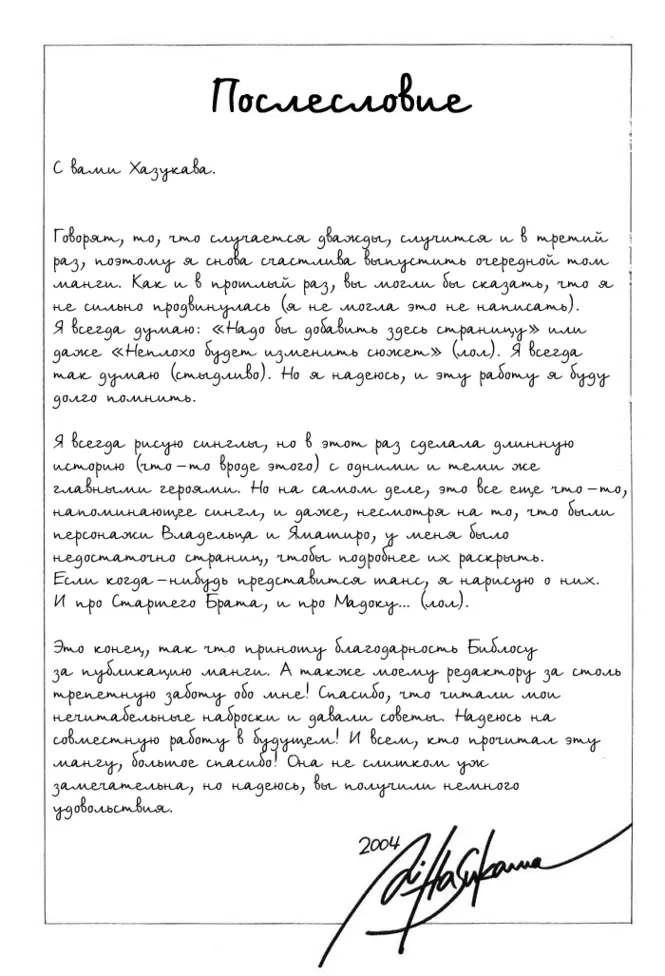 Послесловие
С вами Хазукава.
Говорят, то, что случается дважды, случится и в третий
раз, поэтому я снова счастлива выпустить очередной том
манги. Как и в прошлый раз, вы могли бы сказать, что я
не сильно продвинулась (я не могла это не написать).
Я всегда думаю: «Надо бы добавить здесь страницу» или
даже «Неплохо будет изменить сюжет» (лол). Я всегда
так думаю (стыдливо). Но я надеюсь, и эту работу я буду
долго помнить.
Я всегда рисую синглы, но в этот раз сделала длинную
историю (что-то вроде этого) с одними и теми же
главными героями. Но на самом деле, это все еще что-то,
напоминающее сингл, и даже, несмотря на то, что были
персонажи Владельца и Ямаширо, у меня было
недостаточно страниц, чтобы подробнее их раскрыть.
Если когда-нибудь представится шанс, я нарисую о них.
И про Старшего Брата, и про Мадоку... (лол).
Это конец, так что приношу благодарность Библосу
за публикацию манги. А также моему редактору за столь
трепетную заботу обо мне! Спасибо, что читали мои
нечитабельные наброски и давали советы. Надеюсь на
совместную работу в будущем! И всем, кто прочитал эту
мангу, большое спасибо! Она не слишком уж
замечательна, но надеюсь, вы получили немного
удовольствия.
2004